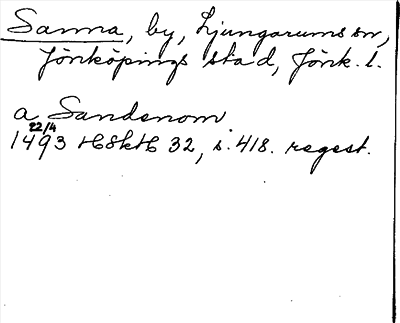 Sanna, by, Ljungarums sn,
Jönköpings stad, Jönk. l.
a Sandenom
22/4
1493 HSkH 32, s. 418. regest.